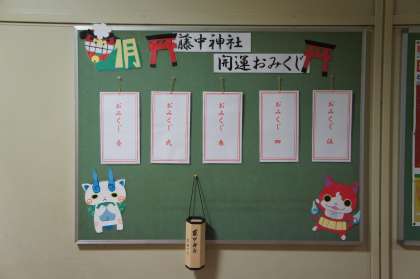 1月
藤中神社
開運おみくじ
おみくじ 壱
おみくじ 弐
おみくじ 参
おみくじ 四
おみくじ 伍
藤中神社